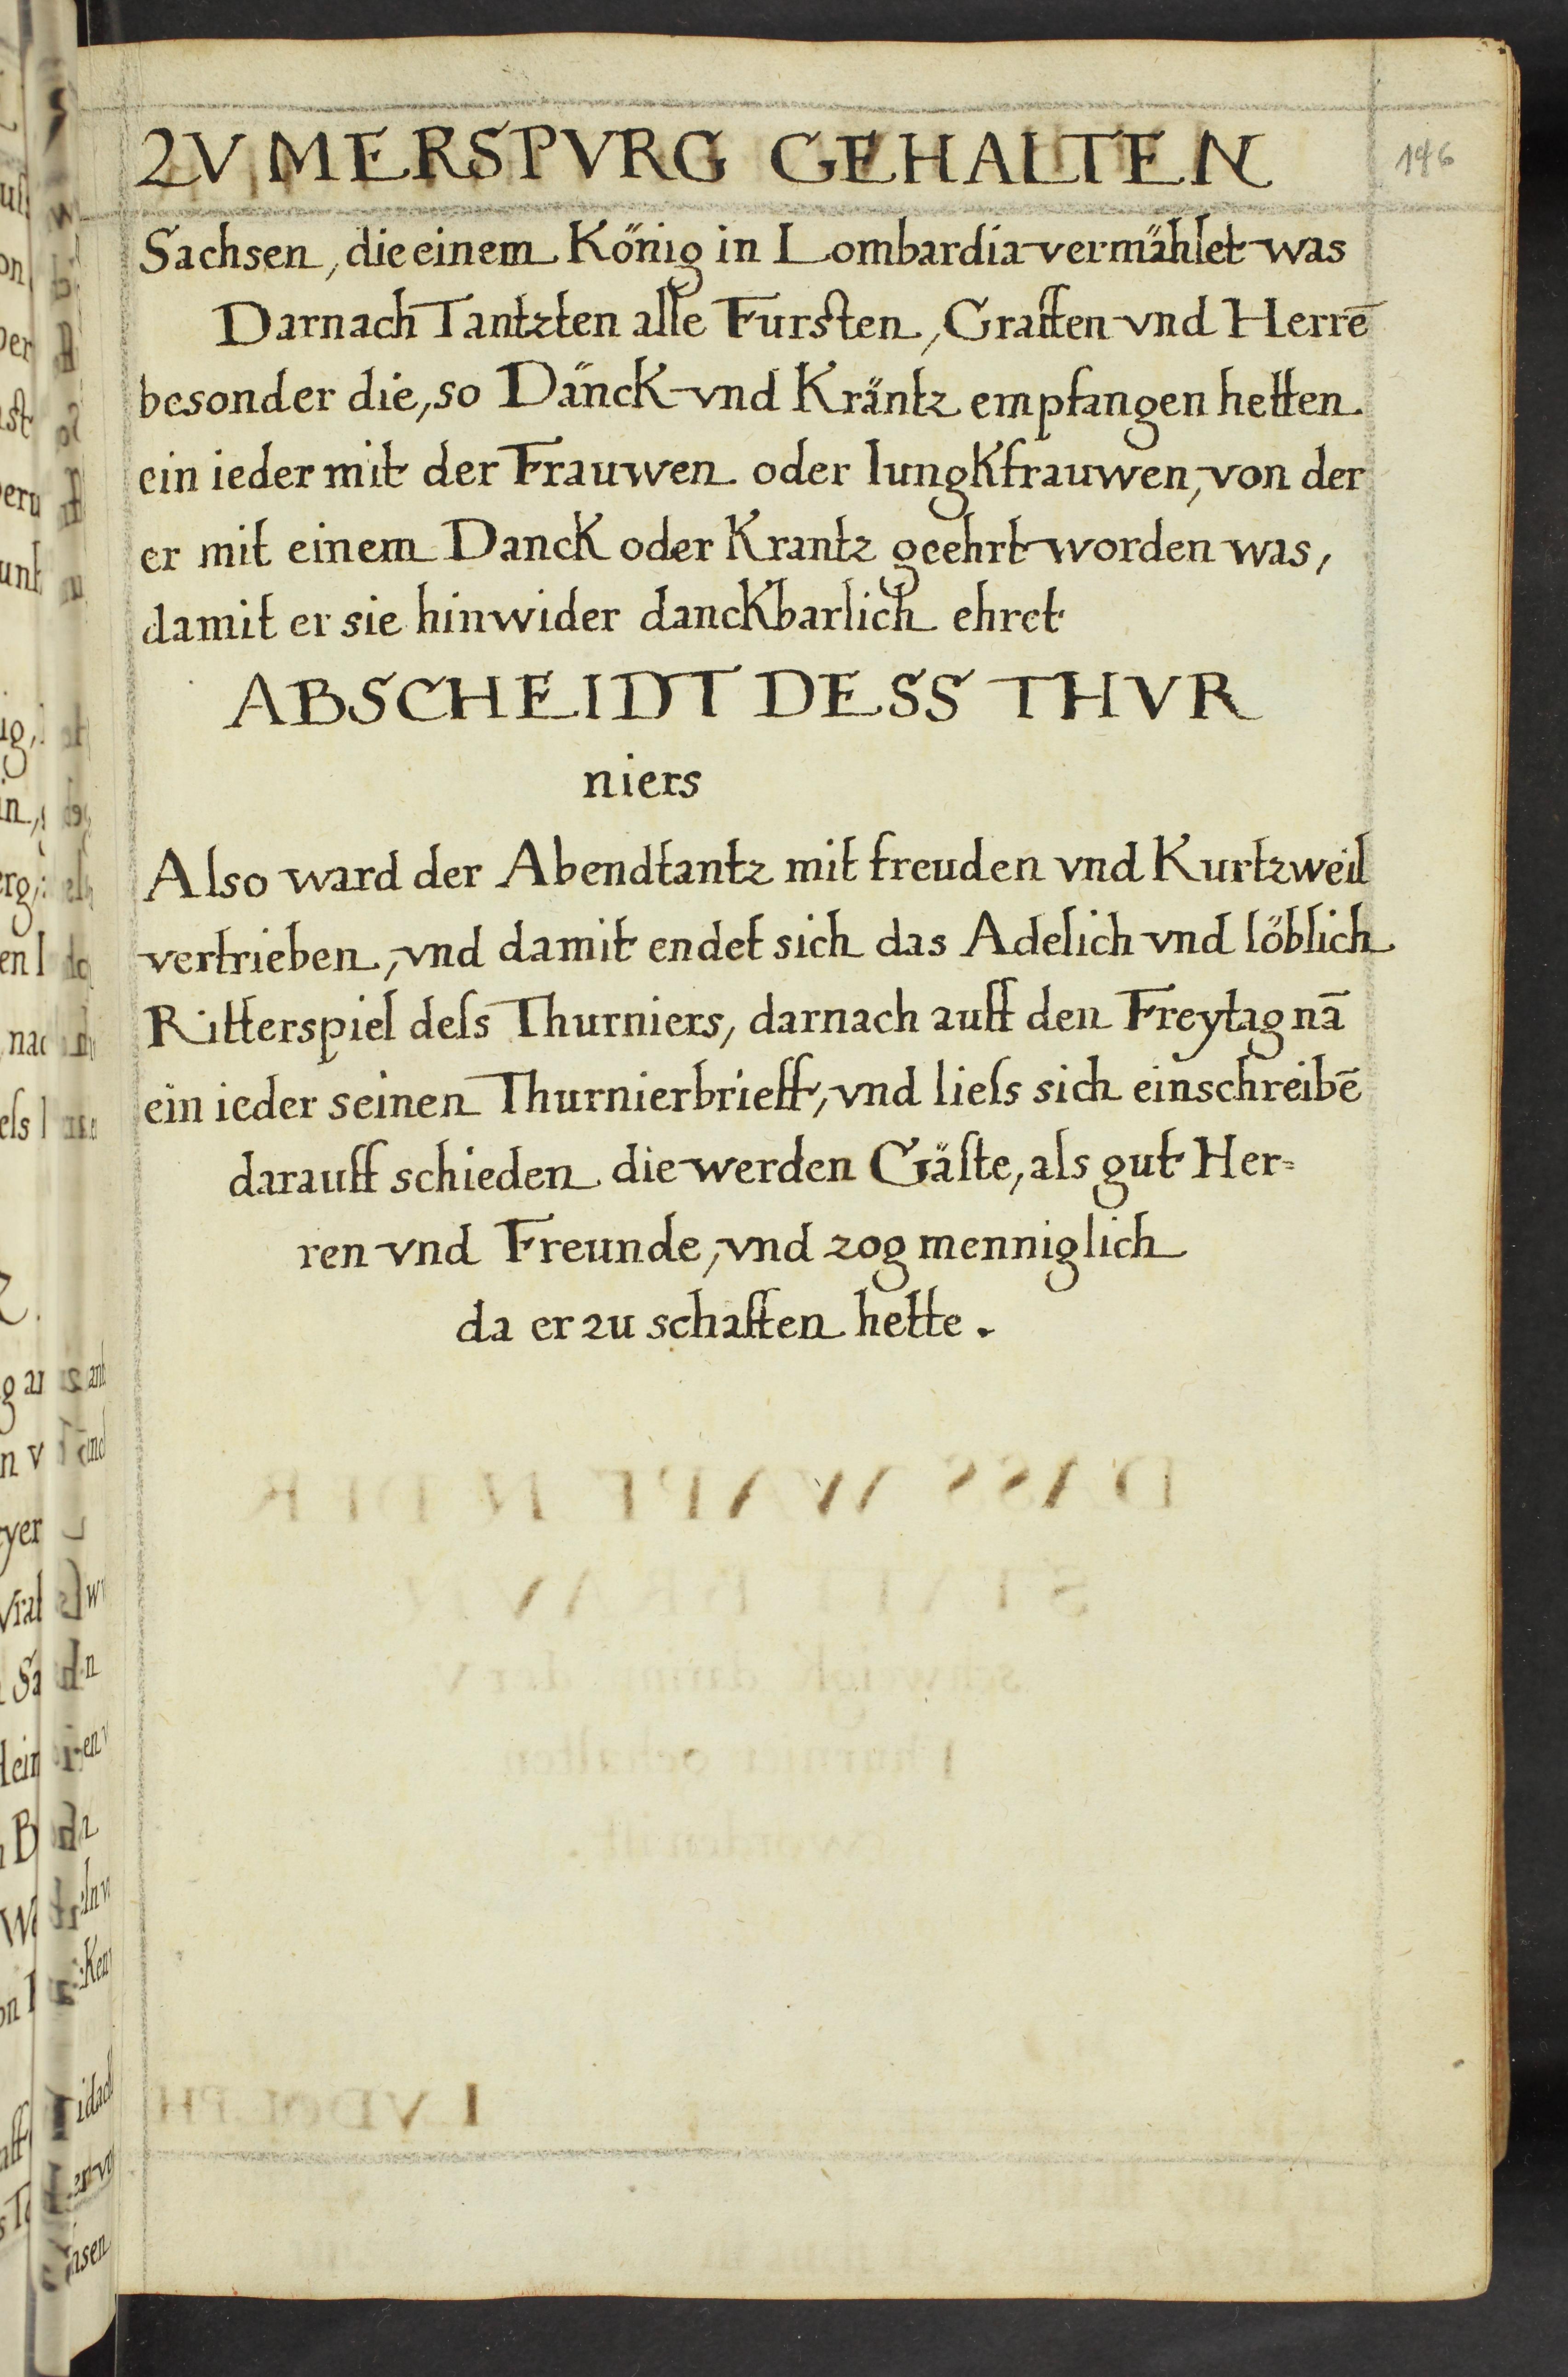 ZV MERSPVRG GEHALTEN
146
Sachsen, die einem König in Lombardia vermählet was
Darnach Tantzten alle Fursten, Graffen vnd Herrē
besonder die, so Dänck vnd Kräntz empfangen hetten
ein ieder mit der Frauwen oder Iungkfrauwen, von der
er mit einem Danck oder Krantz geehrt worden was,
damit er sie hinwider danckbarlich ehret
ABSCHEIDT DESS THVR
niers
Also ward der Abendtantz mit freuden vnd Kurtzweil
vertrieben, vnd damit endet sich das Adelich vnd löblich
Ritterspiel deſs Thurniers, darnach auff den Freytag nā
ein ieder seinen Thurnierbrieff, vnd lieſs sich einschreibē
darauff schieden die werden Gäſte, als gut Her=
ren vnd Freunde, vnd zog menniglich
da er zu schaffen hette.